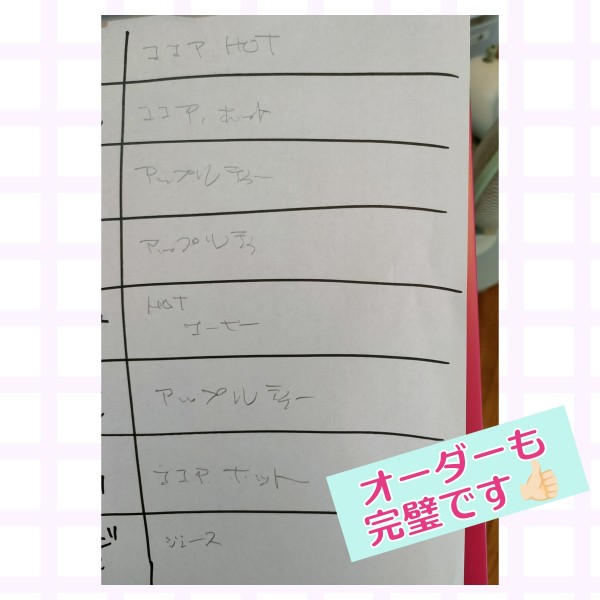 ココア HOT
ココア、ホット
アップルティー
アップルティ
HOT
コーヒー
アップルティー
ココア ホット
ジュース
オーダーも
完璧です👍🏻